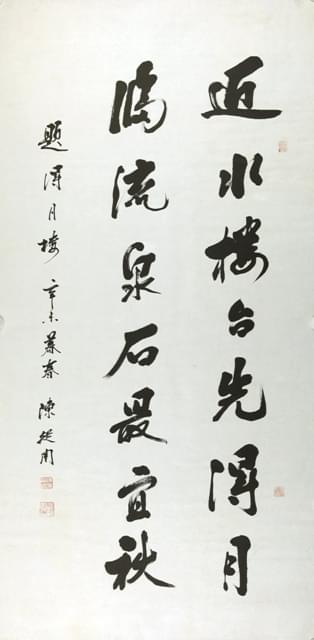 近水楼台先得月
流泉石最宜秋
题得月楼 辛未暮春 陳從周